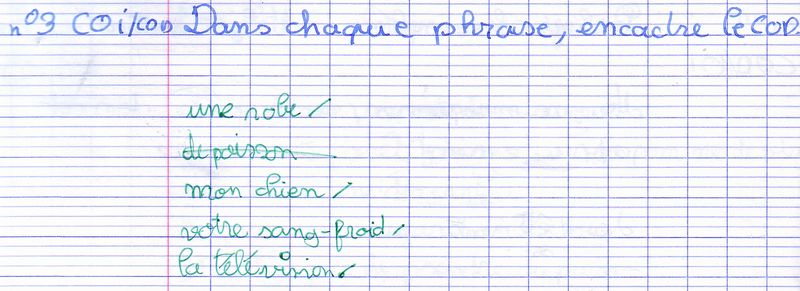 n°3 COi/COD Dans chaque phrase, encadre le COD.
une robe
de poisson
mon chien
votre sang-froid
la télévision